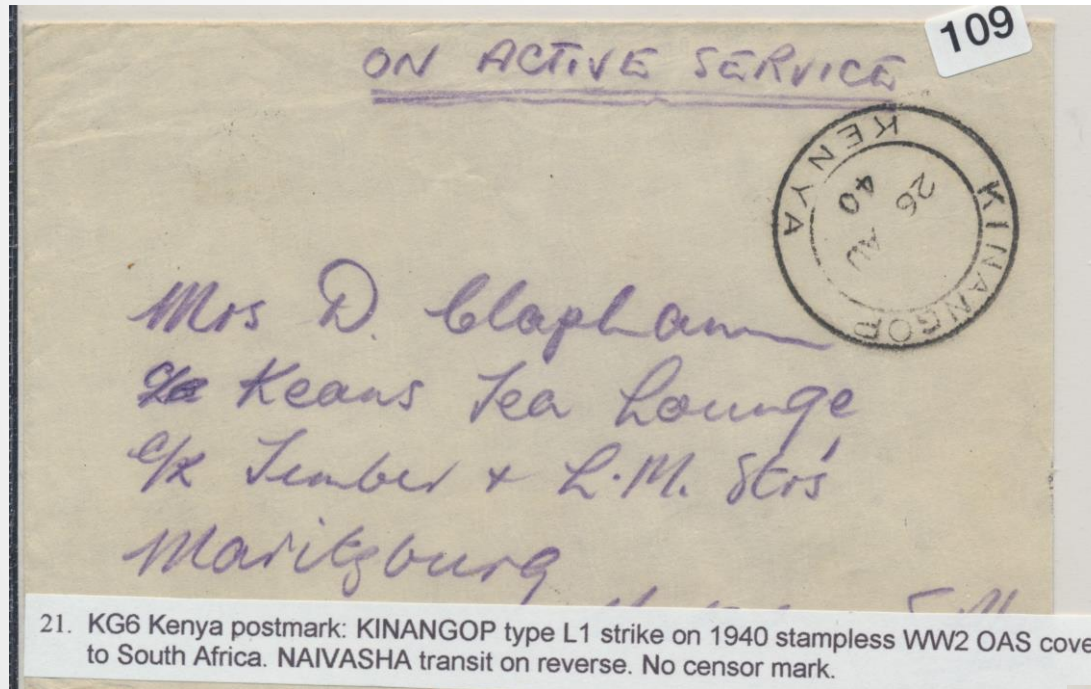 109
ON ACTIVE SERVICE
KINANGOP
KENYA
26 AU
40
Mrs D. Clapham
c/o Keans Tea Lounge
c/r Timber + L.M. Strs
Maritzburg
21. KG6 Kenya postmark: KINANGOP type L1 strike on 1940 stampless WW2 OAS cove
to South Africa. NAIVASHA transit on reverse. No censor mark.